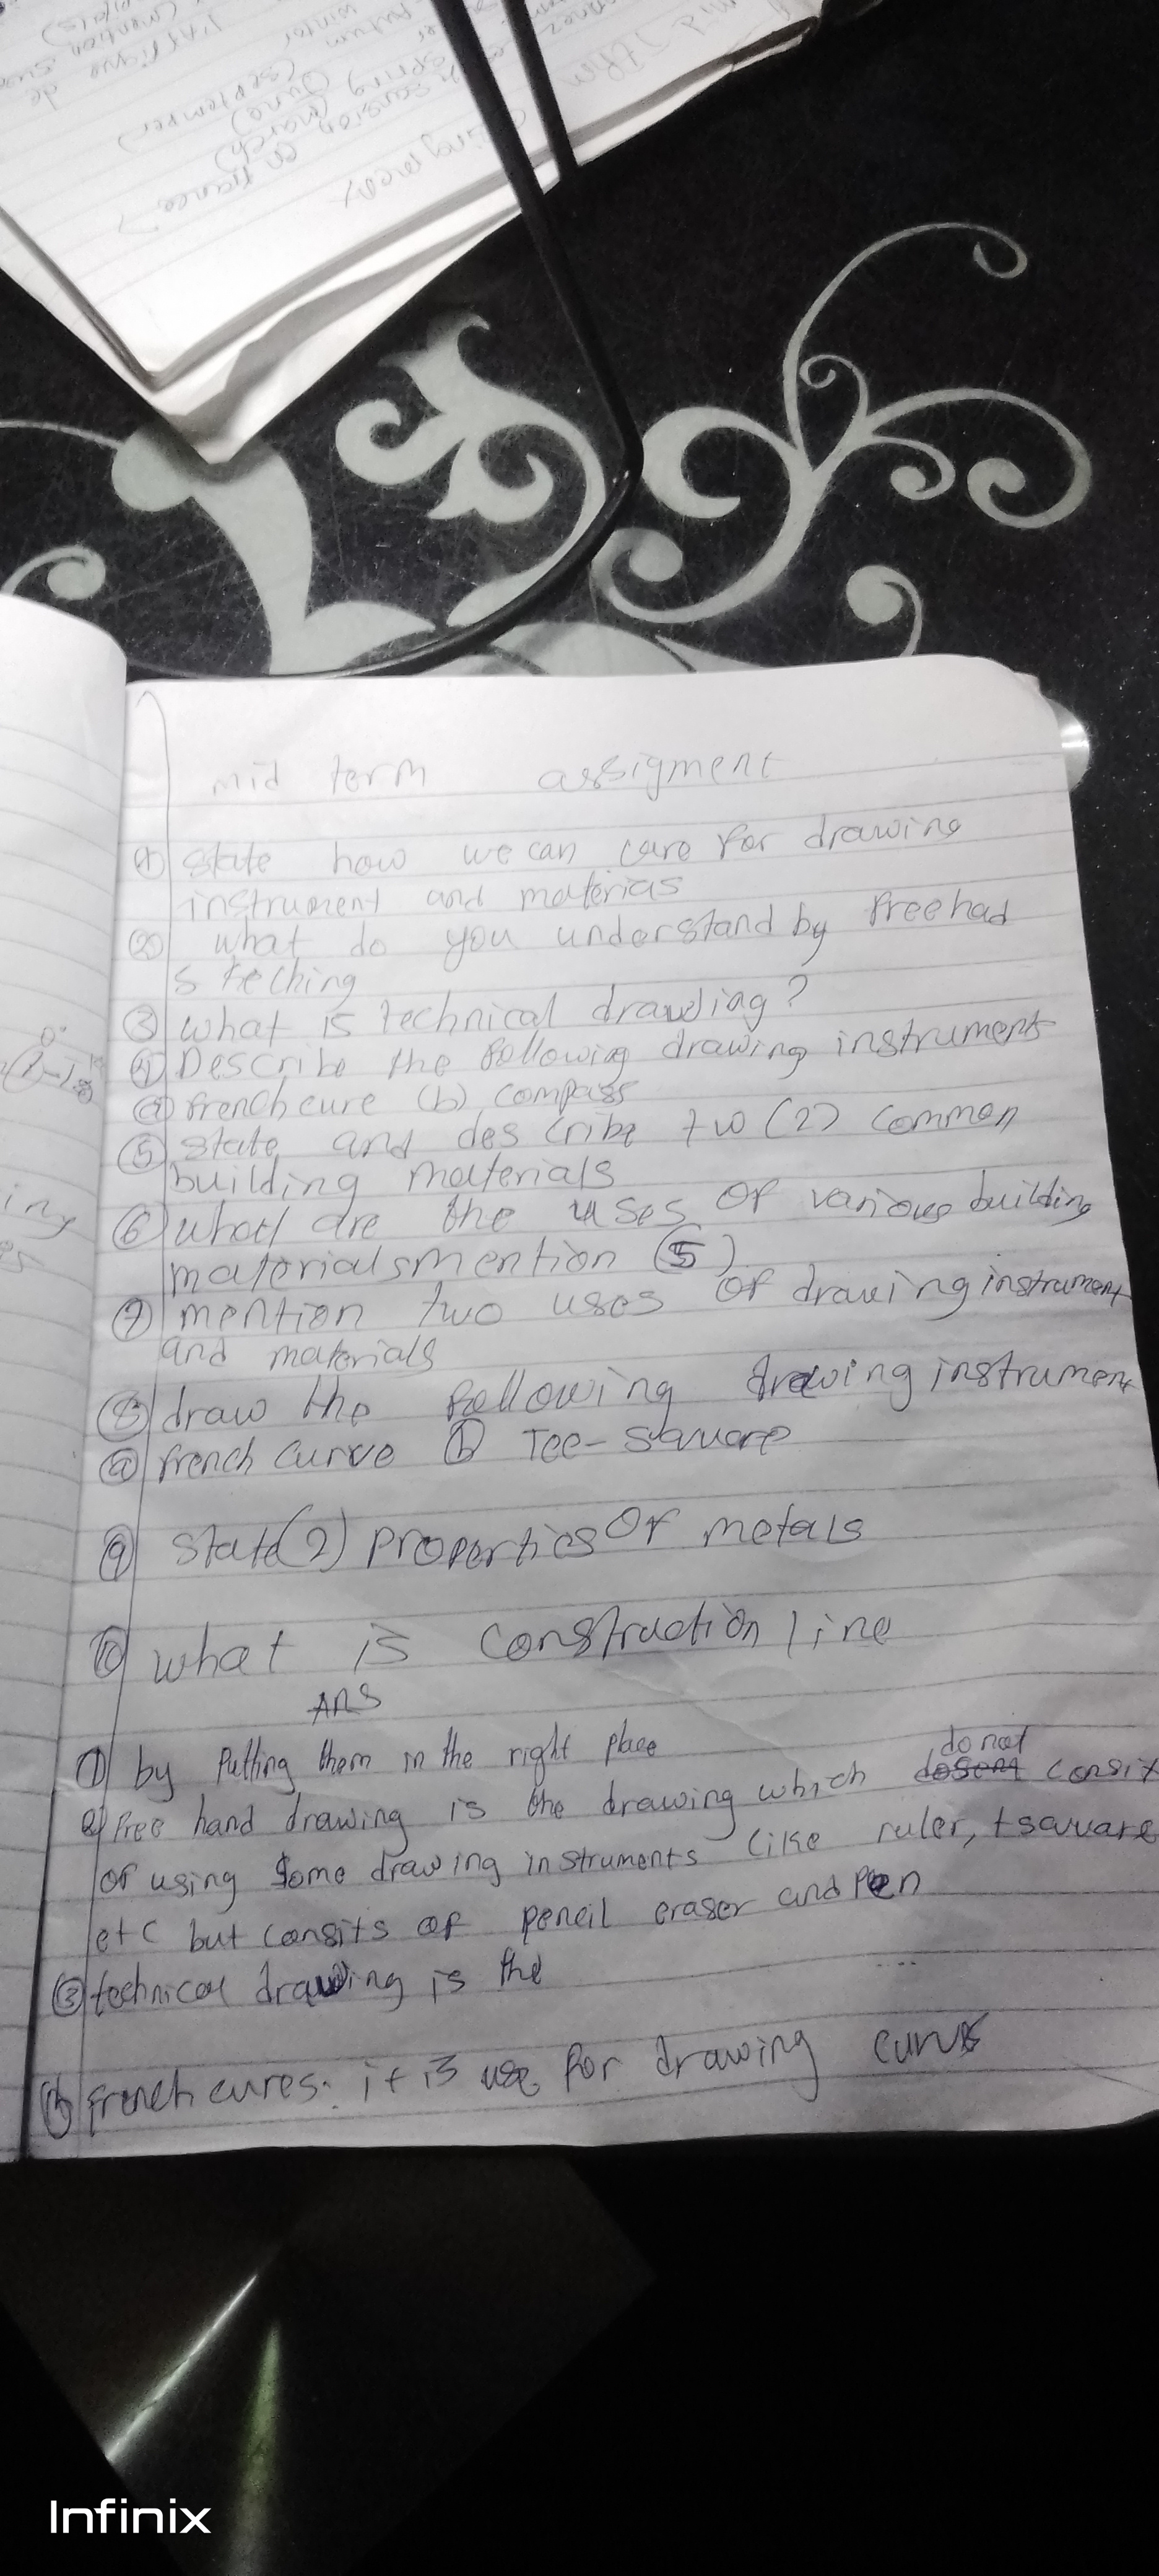 mid term assigment
① state how we can care for drawing
instrument and materias
② what do you understand by freehad
skeching
③ what is technical drawing?
④ Describe the following drawing instrument
ⓐ french cure (b) compass
⑤ state and describe two (2) common
building materials
⑥ what are the uses of various building
materials mention (5)
⑦ mention two uses of drawing instrument
and materials
⑧ draw the following drawing instrument
ⓐ french curve ⓑ Tee-square
⑨ state (2) properties of metals
⑩ what is construction line
Ans
① by putting them in the right place
do not
2) free hand drawing is the drawing which consit
of using some drawing instruments like ruler, tsquare
etc but consits of pencil eraser and pen
③ technical drawing is the ....
french cures: it is use for drawing curve
Infinix